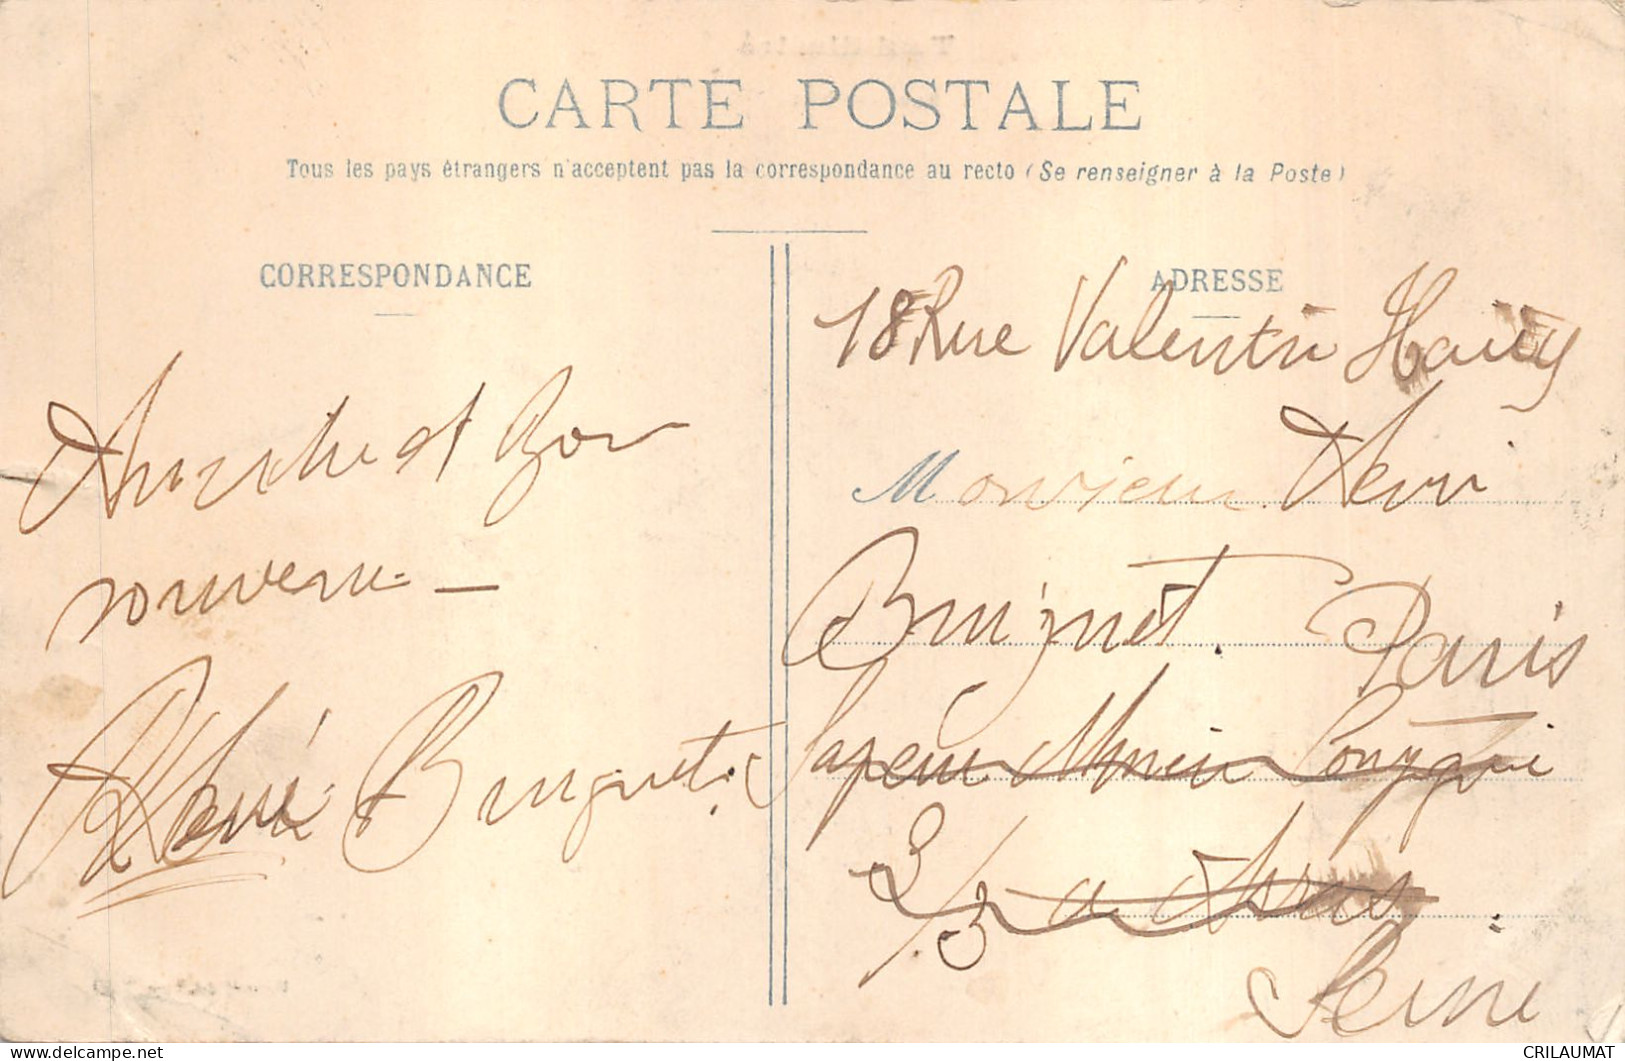 CARTE POSTALE
Tous les pays étrangers n'acceptent pas la correspondance au recto (Se renseigner à la Poste)
CORRESPONDANCE
Amitié et Bon
souvenir -
René Bruguet
ADRESSE
18 Rue Valentin Hauy
Monsieur Henri
Bruguet. Paris
Sapeur Mineur Compagnie
Seine
delcampe.net
CRILAUMAT